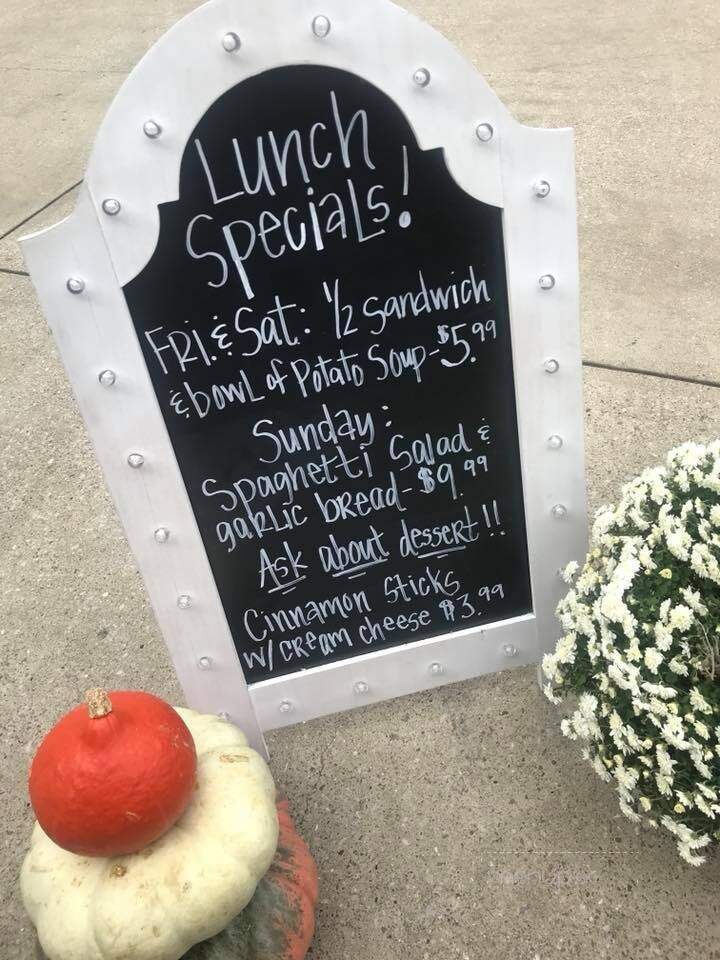 Lunch
Specials!
FRI. & Sat: 1/2 Sandwich
& bowl of Potato Soup - $5.99
Sunday:
Spaghetti Salad &
garlic bread - $9.99
Ask about dessert!!
Cinnamon Sticks
w/ cream cheese $3.99